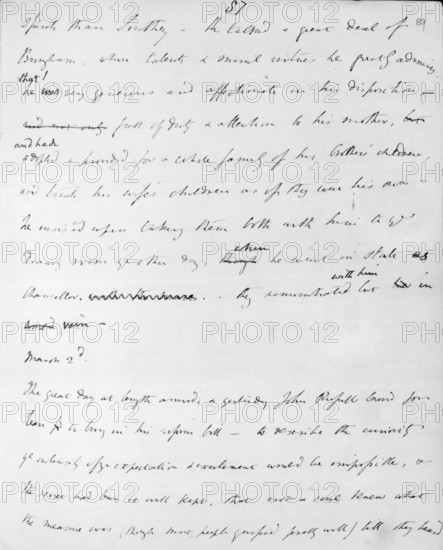 87
89
spirits than Southey – He talked a great deal of
Brougham, whose talents & moral virtues he greatly admires
that!
he was very generous and affectionate in his disposition –
and not only full of duty & affection to his mother, but
and had
adopted & provided for a whole family of his brother's children,
and treats his wife's children as if they were his own –
he insisted upon taking them both with him to ye
Drawing room ye other day, though when he went in state as
Chancellor. – they remonstrated but in
with him
vain –
March 2d.
The great day at length arrived, & yesterday John Russell moved for
leave to bring in his reform bill – to describe the curiosity
ye intensity of ye expectation & excitement would be impossible, &
the secret had been so well kept, that not a soul knew what
the measure was (though most people guessed pretty well) till they heard
PHOTO12